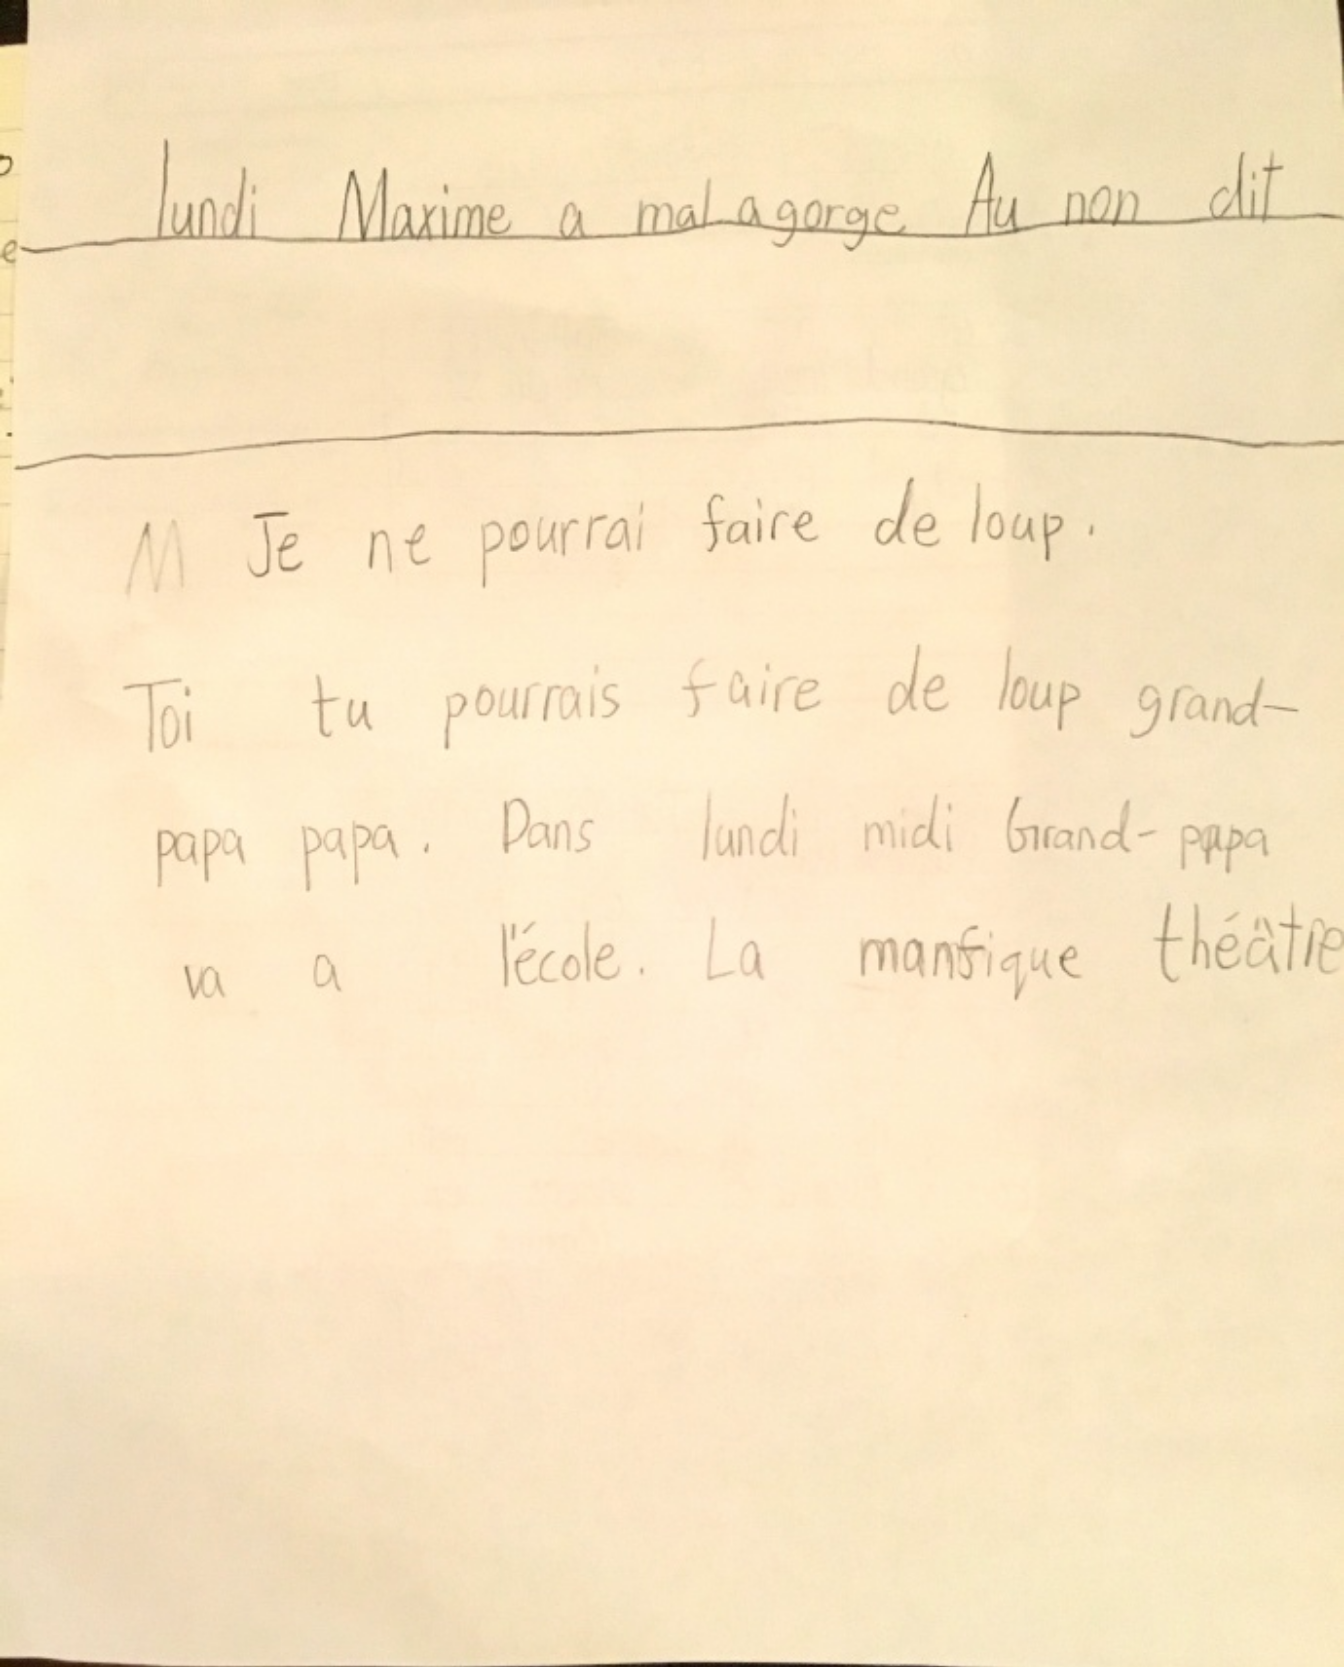 lundi Maxime a mal a gorge Au non dit
M Je ne pourrai faire de loup.
Toi tu pourrais faire de loup grand-
papa papa. Dans lundi midi Grand-papa
va a l'école. La manfique théâtre